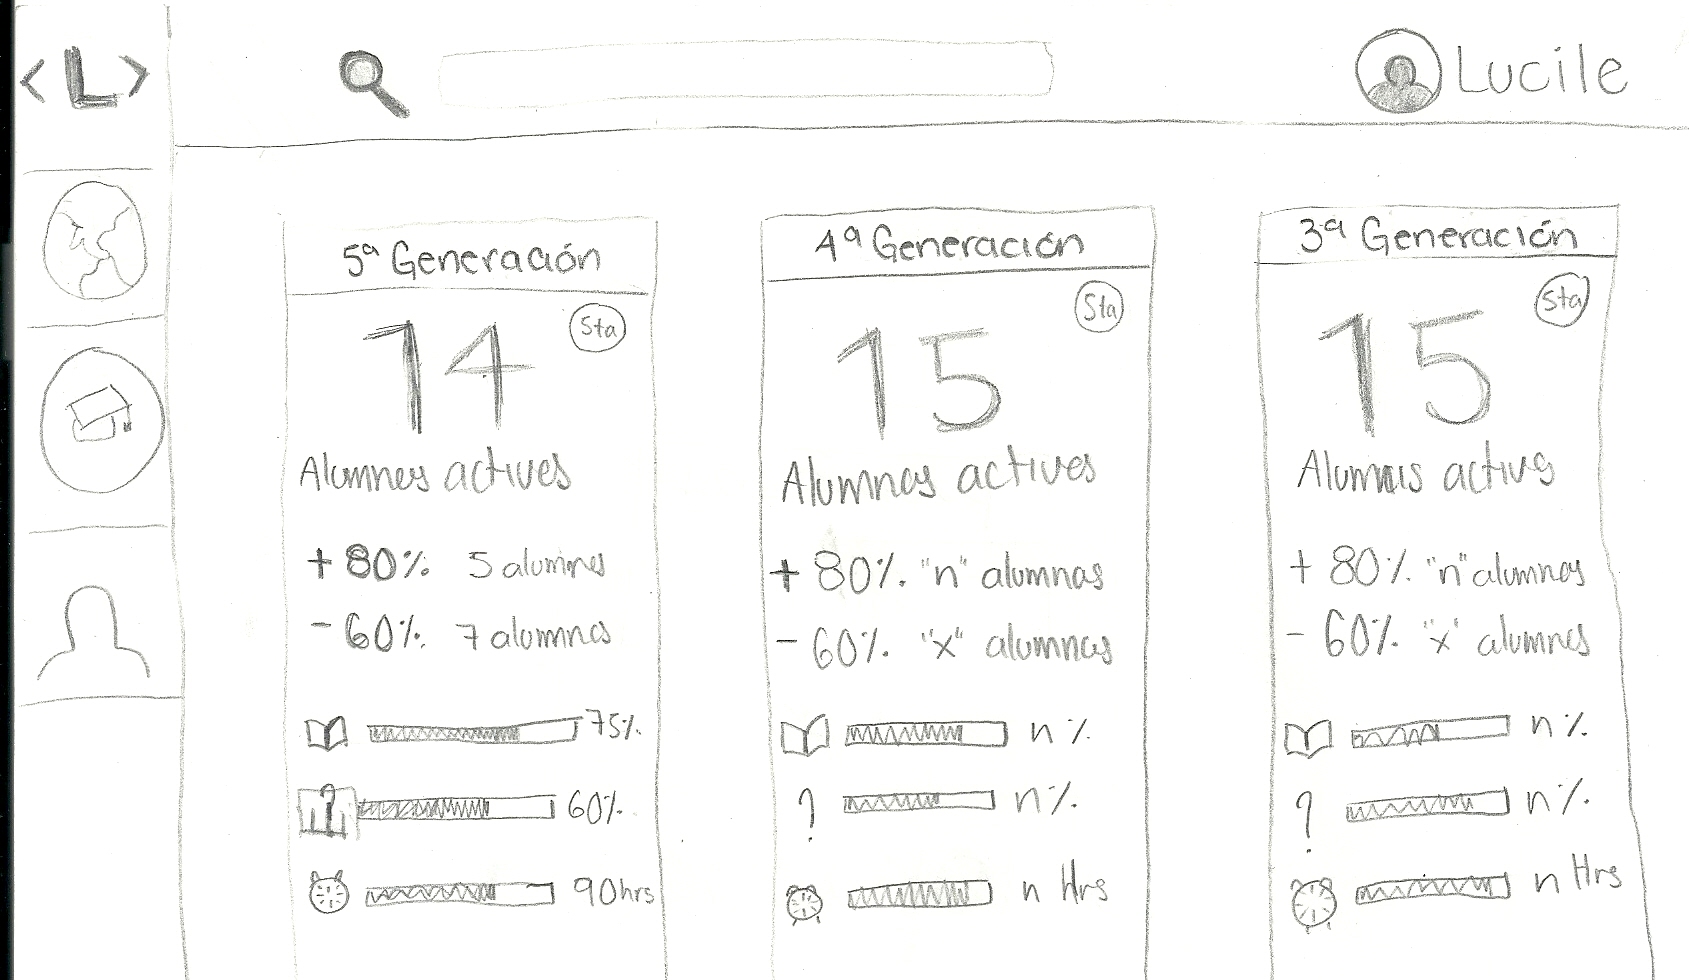 <L>
Lucile
5ª Generación
Sta
14
Alumnes actives
+ 80% 5 alumnes
- 60% 7 alumnes
75%
?
60%
90hrs
4ª Generación
Sta
15
Alumnas actives
+ 80% "n" alumnas
- 60% "x" alumnas
n %
?
n %
n Hrs
3ª Generación
Sta
15
+ 80% "n" alumnes
- 60% "x" alumnes
n %
?
n %
n Hrs